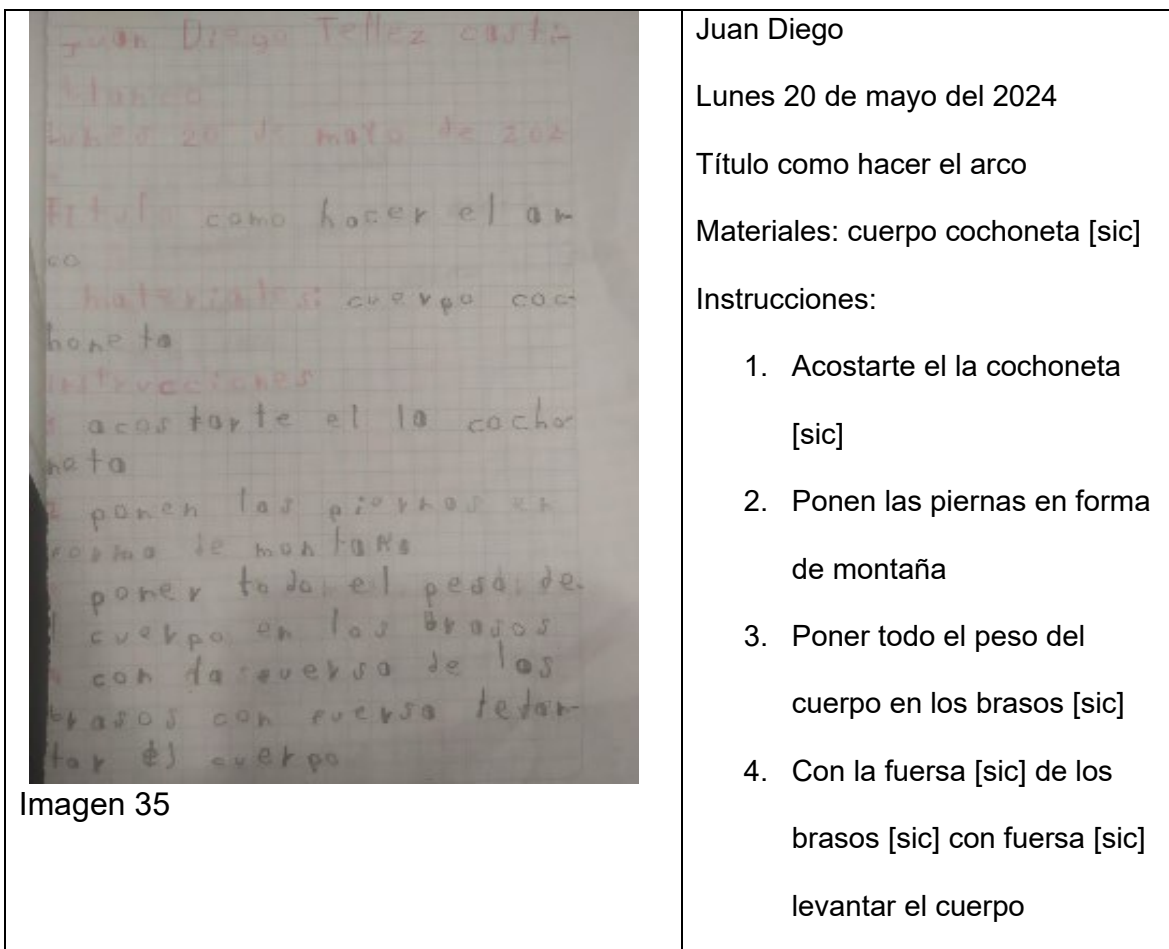 Juan Diego Tellez casti
blanco
Lunes 20 de mayo de 202
Titulo como hacer el ar
co
materiales: cuerpo coc
honeta
instrucciones
1 acostarte el la cocho
neta
2 ponen las piernas en
forma de montaña
poner todo el peso de
l cuerpo en los brasos
con la fuersa de los
brasos con fuersa levan
tar el cuerpo
Imagen 35
Juan Diego
Lunes 20 de mayo del 2024
Título como hacer el arco
Materiales: cuerpo cochoneta [sic]
Instrucciones:
1. Acostarte el la cochoneta
[sic]
2. Ponen las piernas en forma
de montaña
3. Poner todo el peso del
cuerpo en los brasos [sic]
4. Con la fuersa [sic] de los
brasos [sic] con fuersa [sic]
levantar el cuerpo